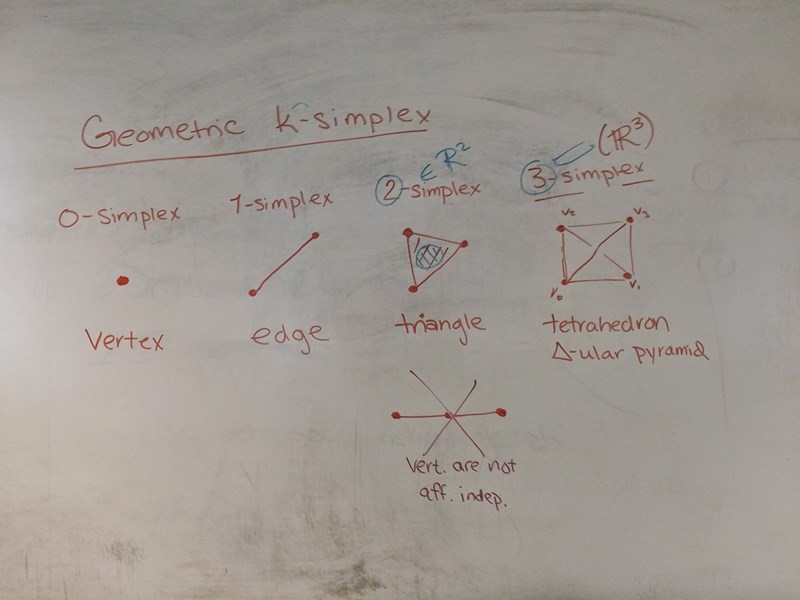 Geometric k-simplex
0-simplex
1-simplex
2-simplex ∈ ℝ²
3-simplex (ℝ³)
v₂ v₃
v₀ v₁
vertex
edge
triangle
tetrahedron
Δ-ular pyramid
vert. are not
aff. indep.